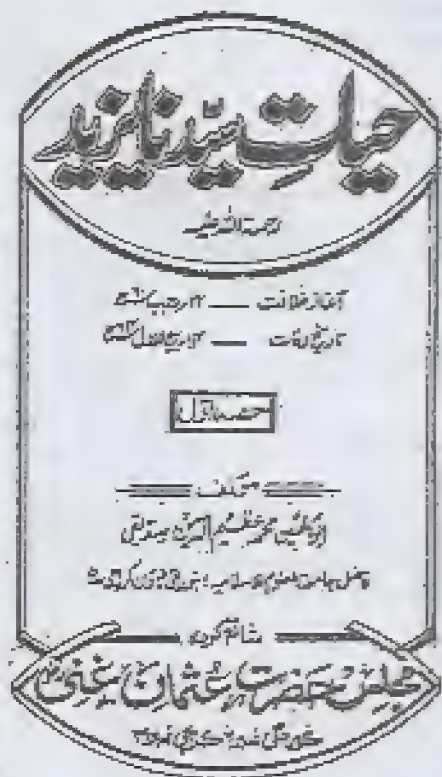 حیاتِ سیّدنا یزید
رحمۃ اللہ علیہ
آغاز خلافت — رجب ۶۰ھ
تاریخ وفات — ۱۴ ربیع الاول ۶۴ھ
حصہ اول
مؤلف
محمد عظیم الدین صدیقی
فاضل جامعۃ العلوم الاسلامیہ بنوری ٹاؤن کراچی
شائع کردہ
مجلس حضرت عثمان غنی
کورنگی کراچی